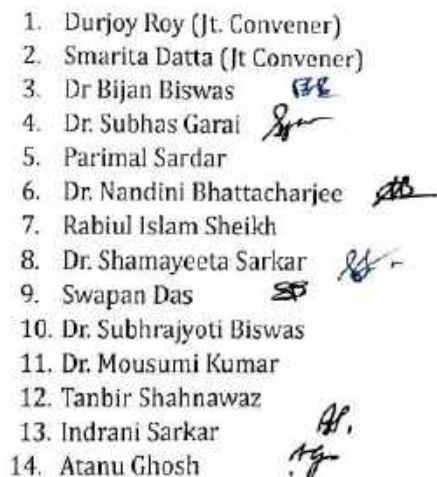 1. Durjoy Roy (Jt. Convener)
2. Smarita Datta (Jt Convener)
3. Dr Bijan Biswas
4. Dr. Subhas Garai
5. Parimal Sardar
6. Dr. Nandini Bhattacharjee
7. Rabiul Islam Sheikh
8. Dr. Shamayeeta Sarkar
9. Swapan Das
10. Dr. Subhrajyoti Biswas
11. Dr. Mousumi Kumar
12. Tanbir Shahnawaz
13. Indrani Sarkar
14. Atanu Ghosh